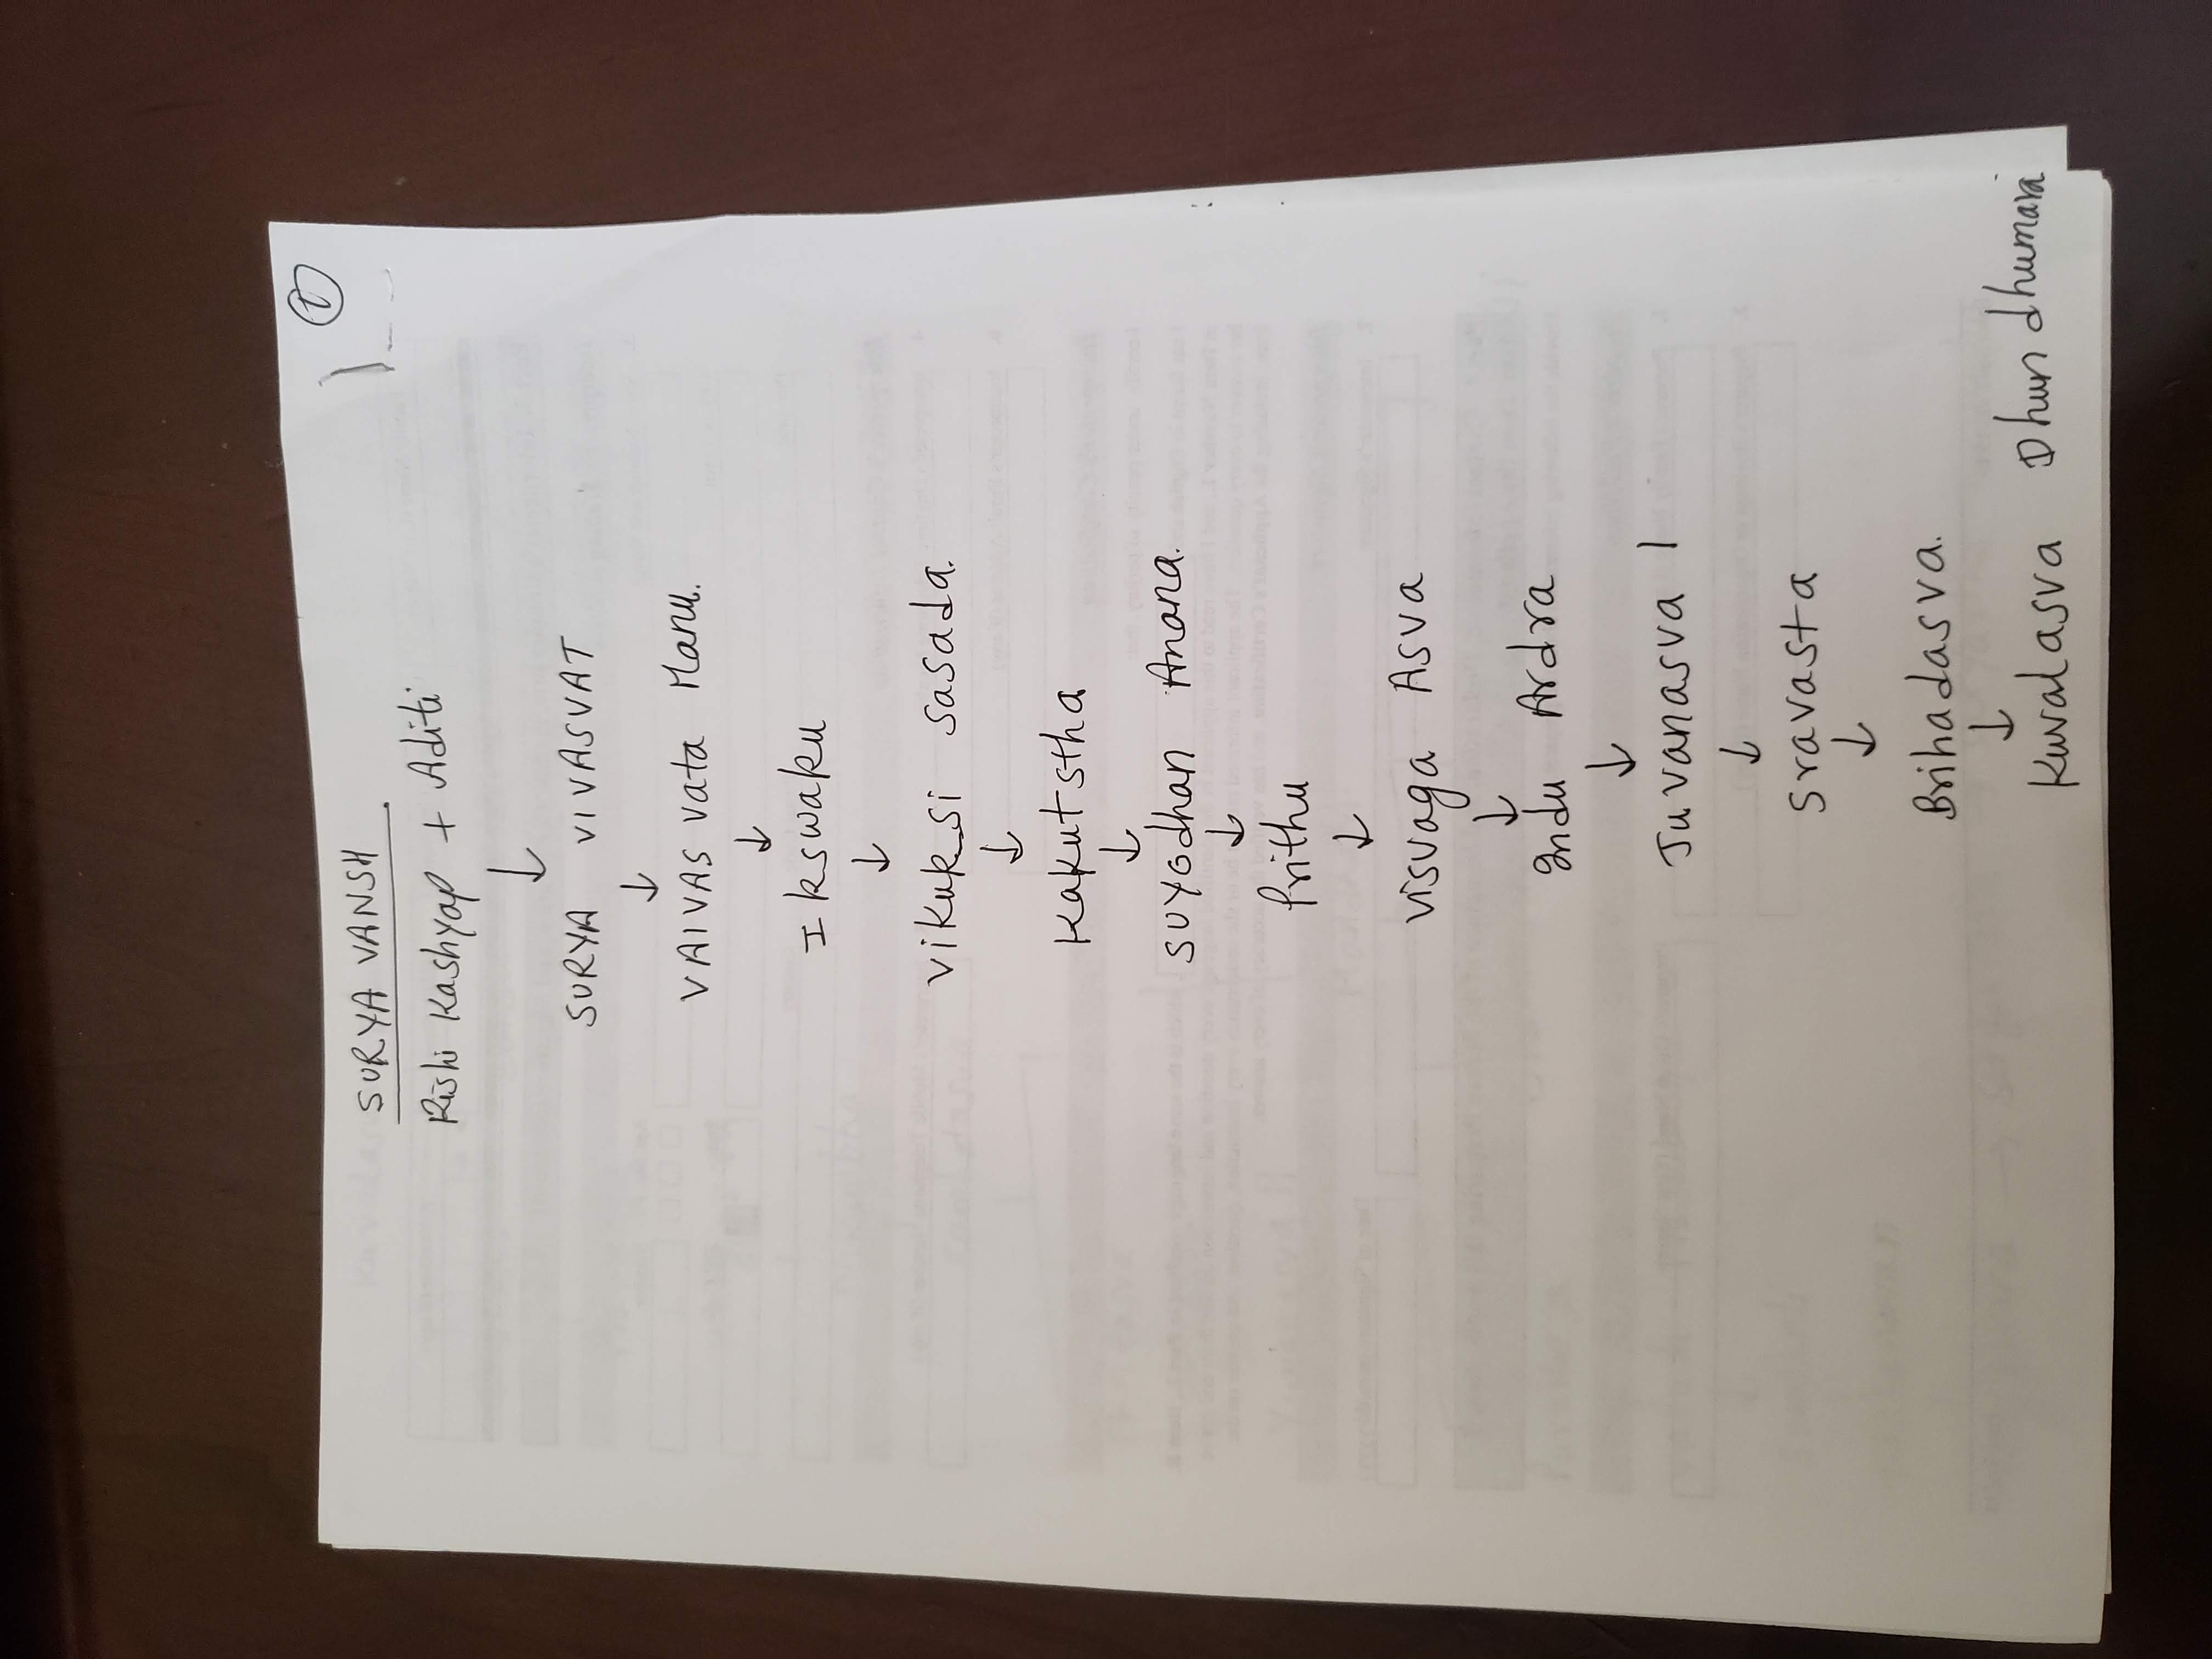 ①
SURYA VANSH
Rishi Kashyap + Aditi
↓
SURYA VIVASVAT
↓
VAIVASvata Manu.
↓
Ikswaku
↓
Vikuksi Sasada.
↓
Kakutstha
↓
SUYodhan Anana.
↓
Prithu
↓
Visvaga Asva
↓
Indu Ardra
↓
Juvanasva 1
↓
Sravasta
↓
Brihadasva.
↓
Kuvalasva Dhundhumara